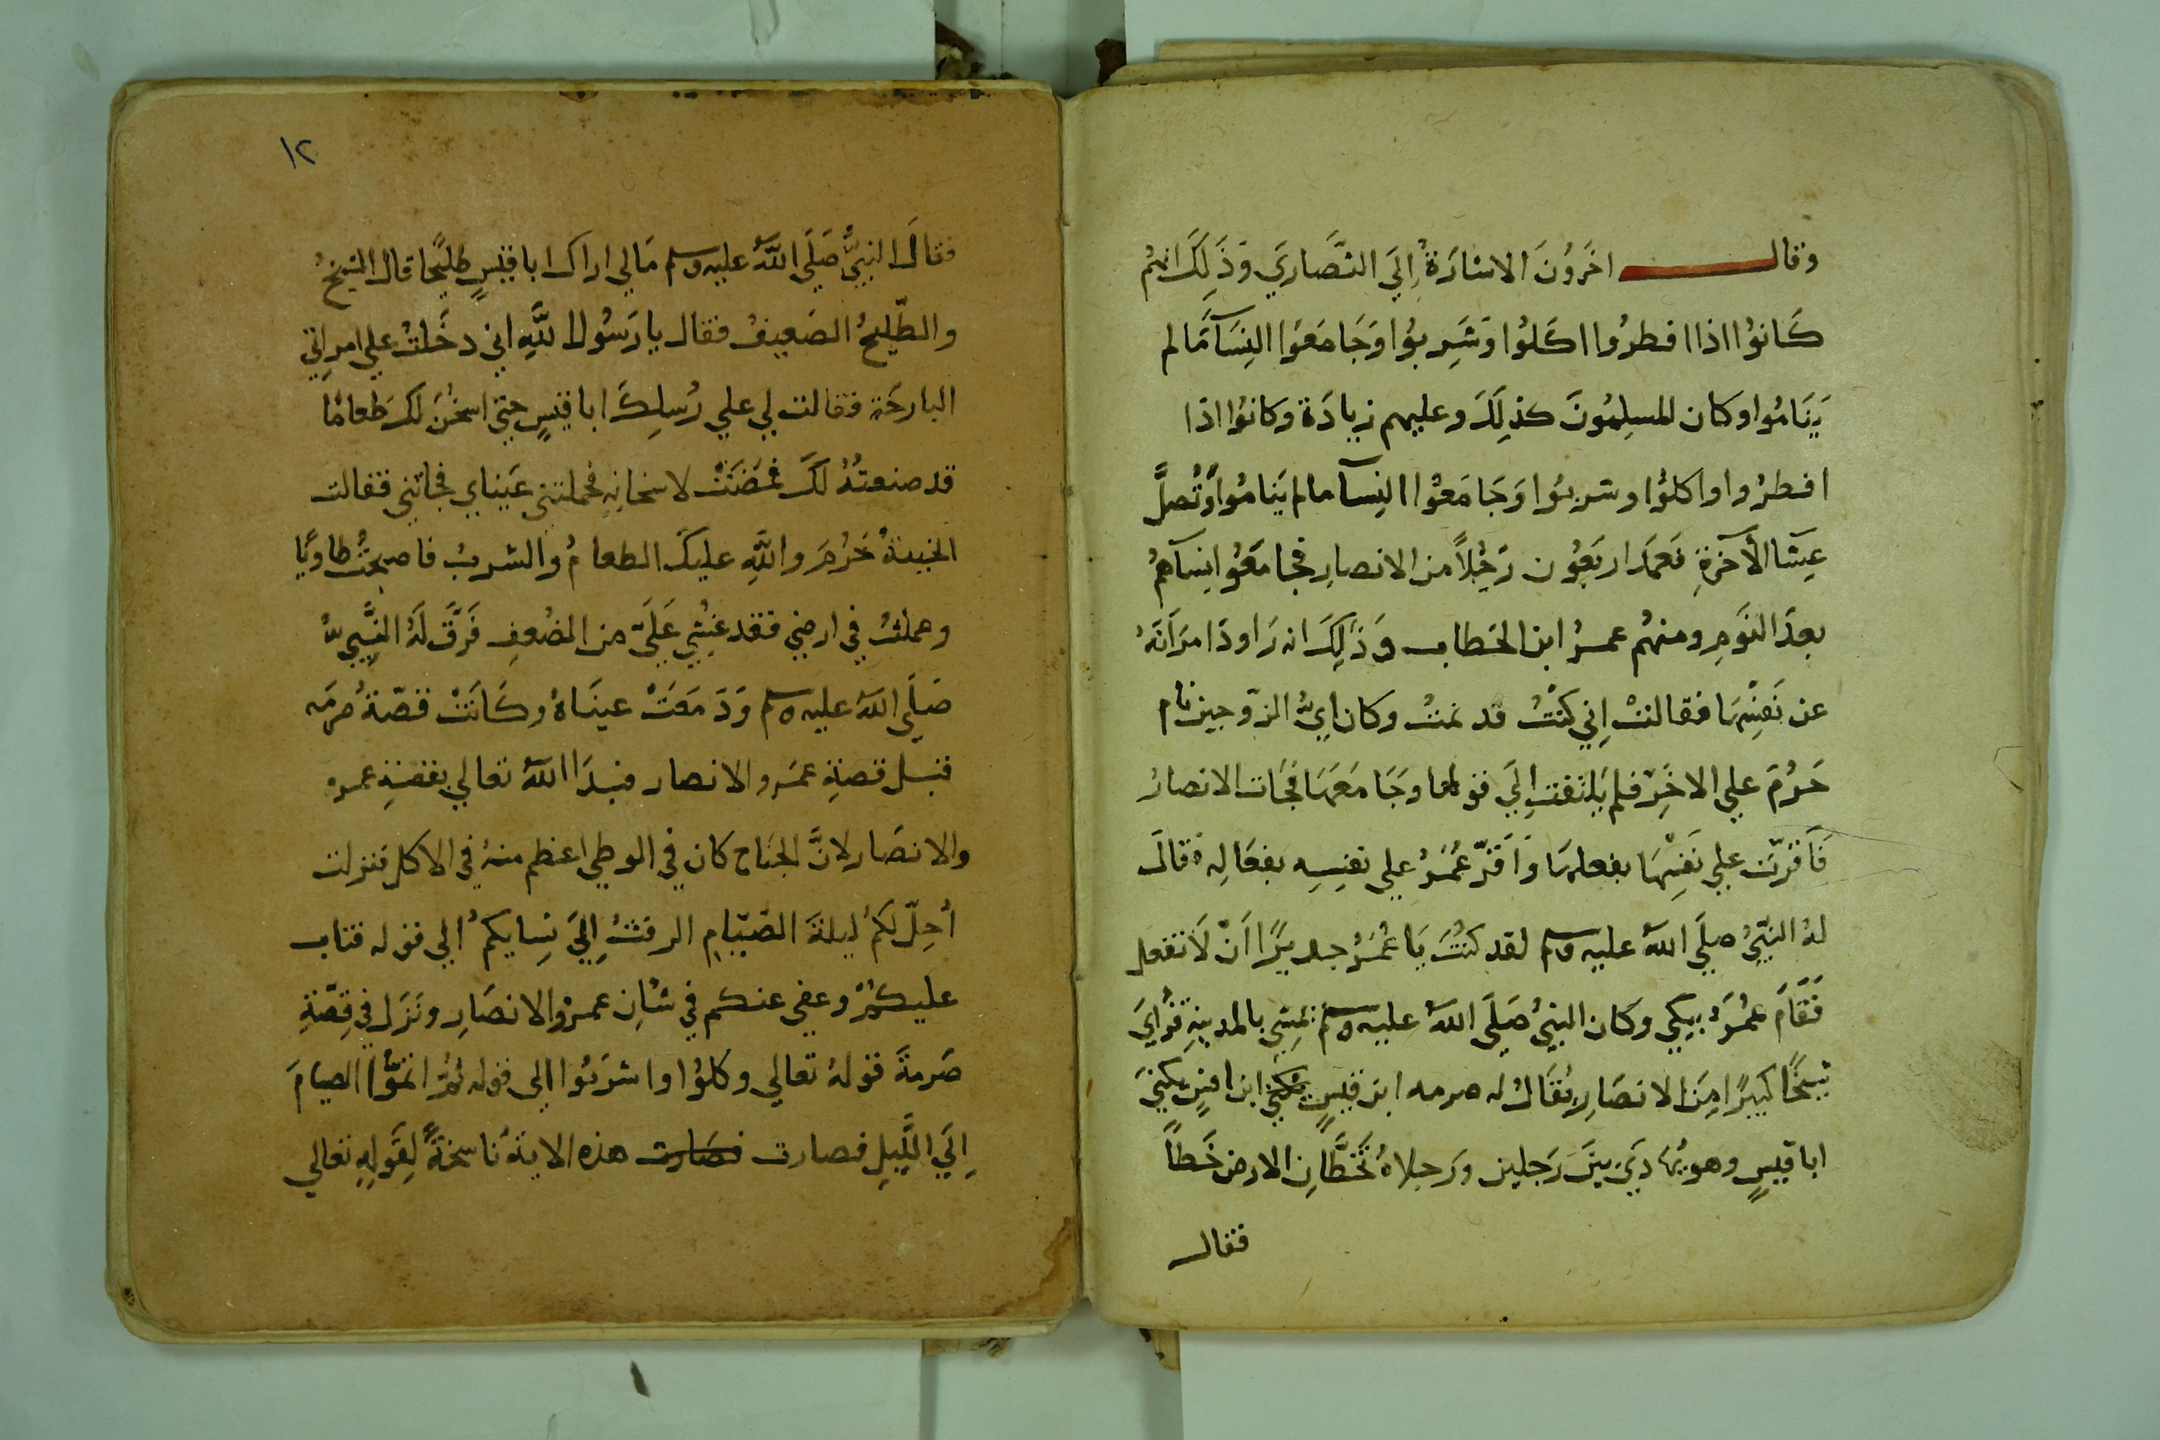 وقال اخَرُونَ الاشارَةُ اِلَي النَّصَارَي وَذَلِكَ انهُم
كَانوُا اذا افطرُوا اكَلوُا وَشَرِبوُا وَجَامَعَوا النِسَآ مَا لم
يَنَامُوا وكان المسلِمُونَ كذلِكَ وعليهم زيادَة وكانوُا اذا
افطرُوا واكلوُا وشربوُا وَجَامَعوُا النِسآ مالم يَنامُوا وَتُصلَّ
عِشَا الآخرَةِ فَعمَدَ اربَعُون رَجُلاً من الانصارِ فجامَعُوا نِسَآهُم
بعدَ النَومِ ومنهُم عمرُ ابن الخطاب وَذَلِكَ انه رَاودَ امرَاتَهُ
عن نَفسِهَا فقالتْ اِنِي كنْتُ قد نمتُ وكان ايُّ الزّوجين نام
حَرُمَ علي الاخَرِ فلم يَلتفت اِلَي قولها وجَامَعَهَا فجَات الانصارُ
فَاقرّت علي نَفسِهَا بفعلهَا وَاقرّ عُمَرُ علي نفسِه بفعَالِه فقالَ
لهُ النَبّيُ صلَي اللهُ عليه وسلم لقد كنُتَ يَا عُمَرُ جديرًا اَنْ لَا تفعل
فَقَامَ عمُرَ يبكي وكَان النبيُ صَلَي اللهُ عليه وسلم يمشِي بالمدينةِ فرُايَ
شيخًا كبيرًا مِنَ الانصَارِ يُقَالُ له صرمه ابن قيسٍ يكني ابن انسٍ يكنيَ
ابا قيسٍ وهو يُهَادَيَ بينَ رَجلين ورَجلاهُ تَخُطَّانِ الارض خَطاً
فقال
١٢
فقالَ النبيُّ صَلَي اللهُ عليه وسلم مَالي اراك ابا قيسٍ طليحًا قال الشيخُ
والطّليحُ الصَعيفُ فقال يا رَسُول اللَّهِ اني دخَلتُ علي امراتي
البارحَة فقالت لي علي رُسلِكَ ابا قيسٍ حتي اسخُنَ لكَ طَعامًا
قد صنعتُهُ لكَ فمَضَتْ لاسخانِهِ فحملتني عَيناي فجاتني فقالت
الخيبةُ حَرُمَ واللَّهِ عليكَ الطعامُ والشربُ فاصبحتُ طاوِيًا
وعملتُ في ارضي فقد غشِي عَلَيّ من الضُعف فَرَقَّ لَهُ النَّبِيُّ
صَلَي اللهُ عليه وسلم وَدَمَعَتْ عينَاهُ وكَانَتْ قصّةُ صرمَه
قبل قصةِ عمَر والانصار فبدَا اللهُ تعالي بقصةِ عمر
والانصَار لانَّ الجنَاح كان في الوطي اعظم منهُ في الاكل فنزلت
اُحِلّ لكَمُ ليلةَ الصّيَامِ الرفثُ اِليَ نِسايكمُ الي قوله فتاب
عليكمُ وعفي عنكم في شانِ عمرُ والانصَارِ ونَزَل في قِصّةِ
صَرمةَ قولهُ تعالي وكلوُا واشرَبُوا الي قوله ثمُّ اتمُّوا الصيامَ
اِلَي اللَّيلِ فصارت فصارت هذه الايةُ ناسخةً لِقَولِهِ تعالي